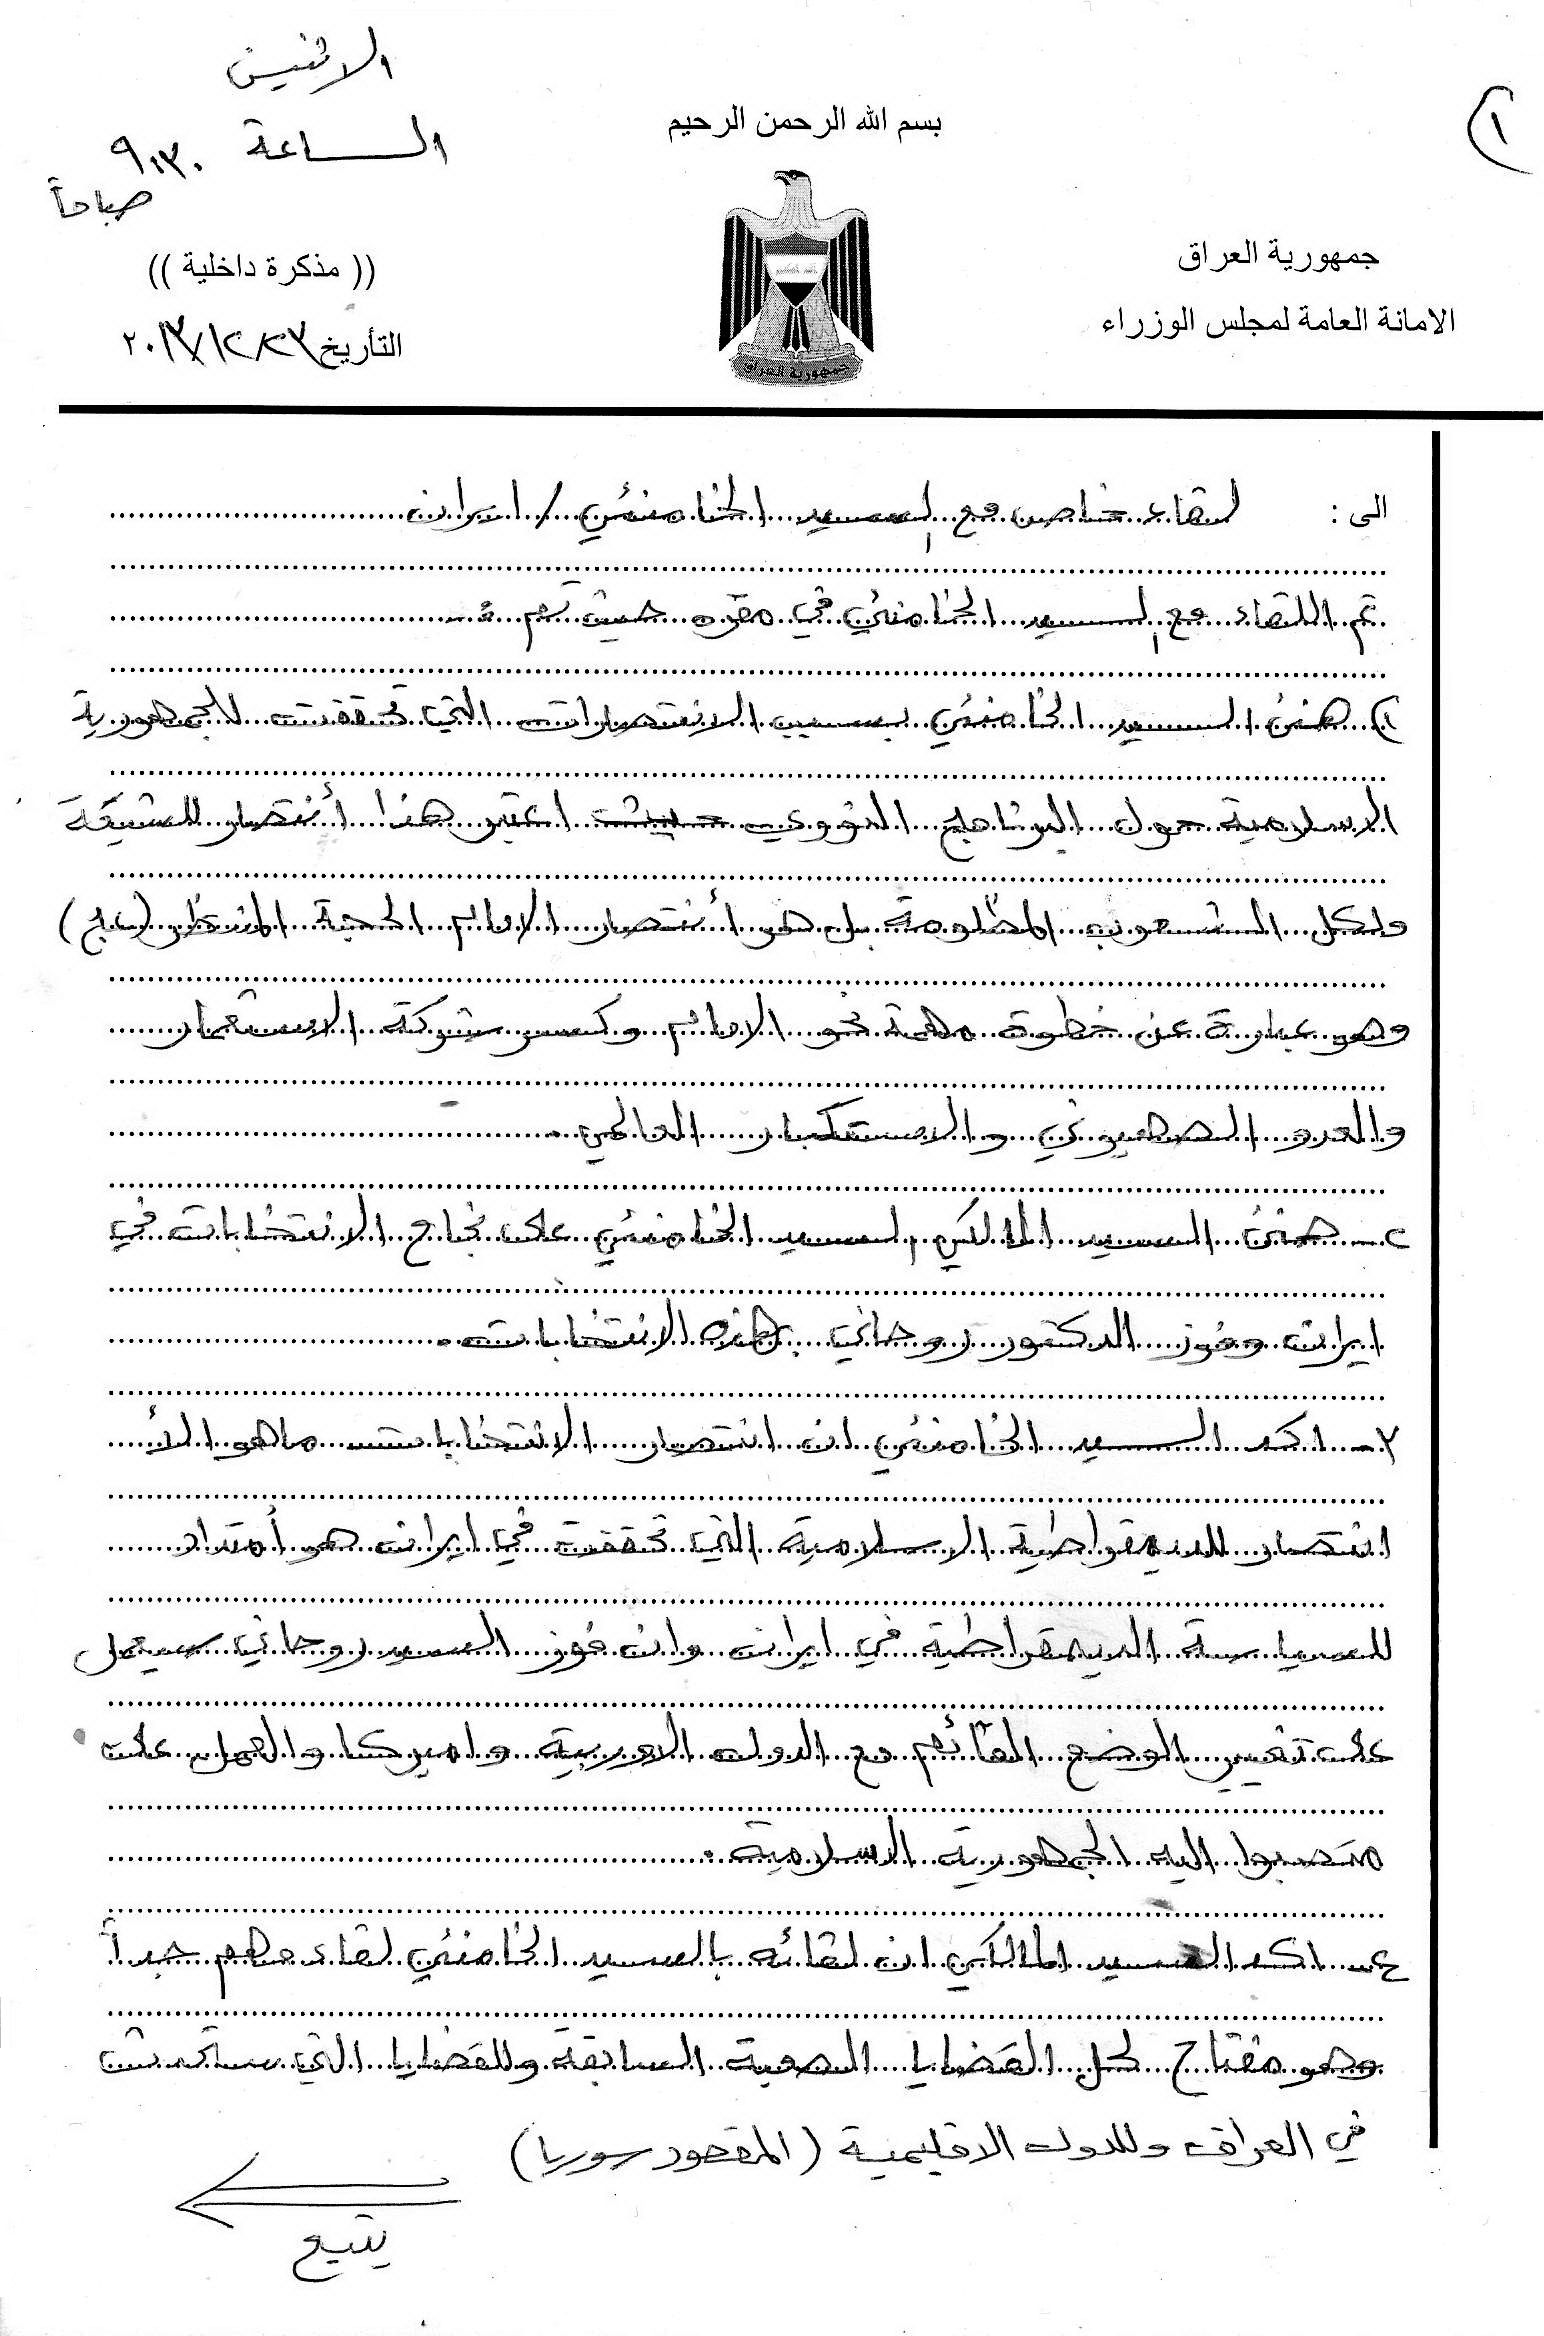 الاثنين
الساعة ٩،٣٠
صباحاً
١)
بسم الله الرحمن الرحيم
جمهورية العراق
الامانة العامة لمجلس الوزراء
(( مذكرة داخلية ))
التأريخ ٢٠١٣/١٢/٢٣
جمهورية العراق
الى : لقاء خاص مع السيد الخامنئي / ايران
تم اللقاء مع السيد الخامنئي في مقره حيث تم :-
١) هنئ السيد الخامنئي بسبب الانتصارات التي تحققت للجمهورية
الاسلامية حول البرنامج النووي حيث اعتبر هذا أنتصار للشيعة
ولكل الشعوب المظلومة بل هو أنتصار الامام الحجة المنتظر (عج)
وهو عبارة عن خطوة مهمة نحو الامام وكسر شوكة الاستعمار
والعدو الصهيوني والاستكبار العالمي .
٢ - هنئ السيد المالكي السيد الخامنئي على نجاح الانتخابات في
ايران وفوز الدكتور روحاني بهذه الانتخابات .
٣ - اكد السيد الخامنئي ان انتصار الانتخابات ماهو الأ
انتصار للديمقراطية الاسلامية التي تحققت في ايران هو أمتداد
للسياسة الديمقراطية في ايران وان فوز السيد روحاني سيعمل
على تغيير الوضع القائم مع الدول الاوربية واميركا والعمل على
متصبوا اليه الجمهورية الاسلامية .
٤ - اكد السيد المالكي ان لقائه بالسيد الخامنئي لقاء مهم جداً
وهو مفتاح لحل القضايا الصعبة السابقة وللقضايا التي ستحدث
في العراق وللدول الاقليمية (المقصود سوريا)
يتبع